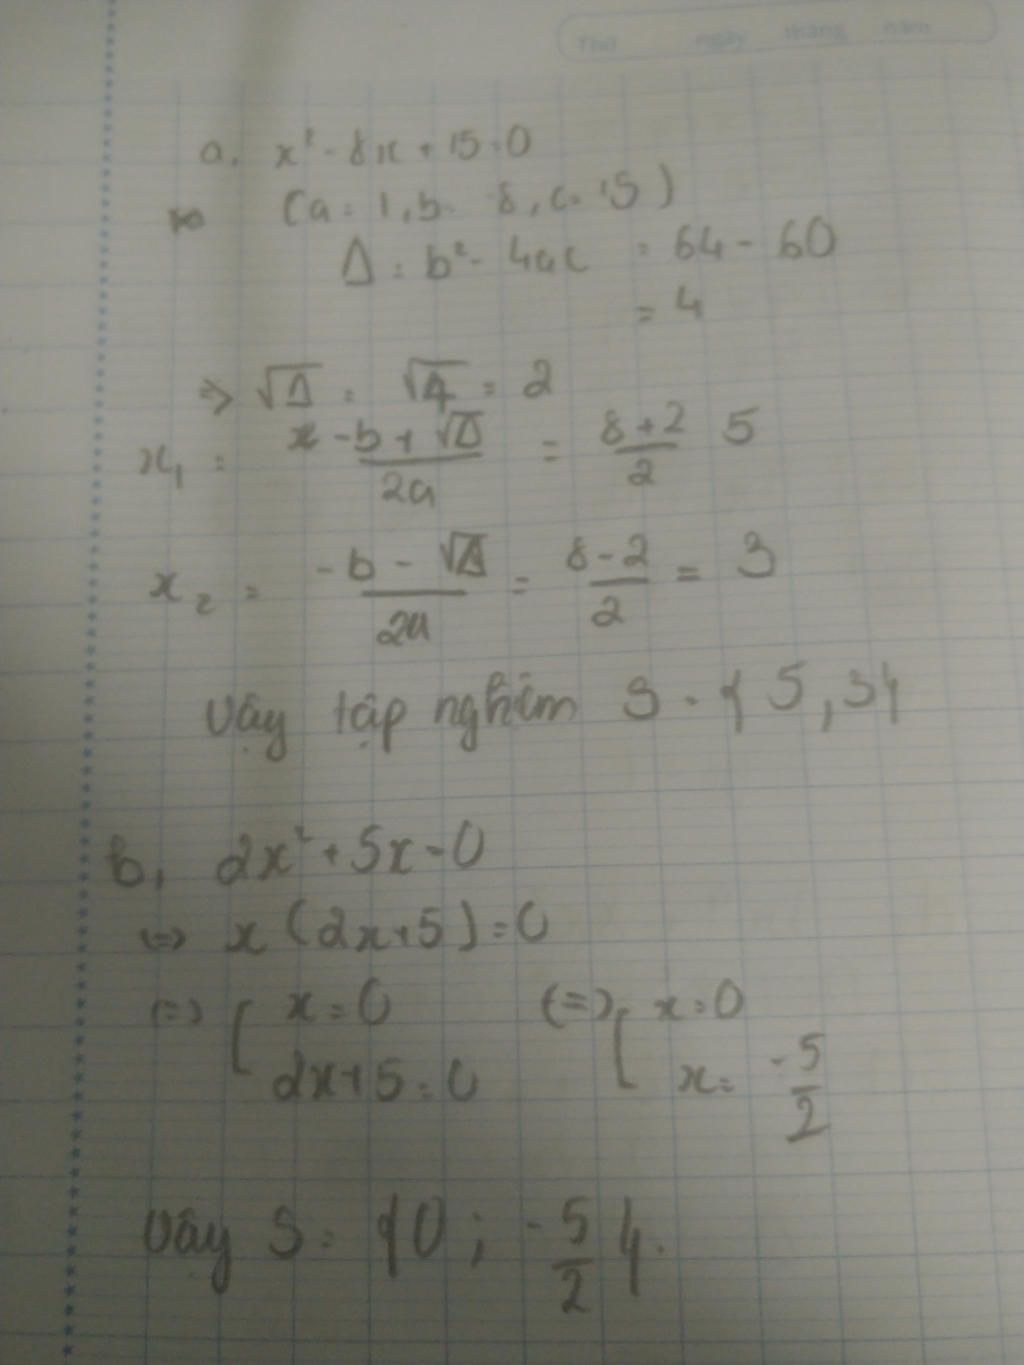 Thứ ngày tháng năm
a. x² - 8x + 15 = 0
(a = 1, b = -8, c = 15)
Δ = b² - 4ac = 64 - 60
= 4
=> √Δ = √4 = 2
x₁ = -b + √Δ / 2a = 8 + 2 / 2 5
x₂ = -b - √Δ / 2a = 8 - 2 / 2 = 3
Vậy tập nghiệm S = {5, 3}
b, 2x² + 5x = 0
<=> x (2x + 5) = 0
<=> [ x = 0 <=> [ x = 0
2x + 5 = 0 x = -5/2
Vậy S = {0 ; -5/2}.